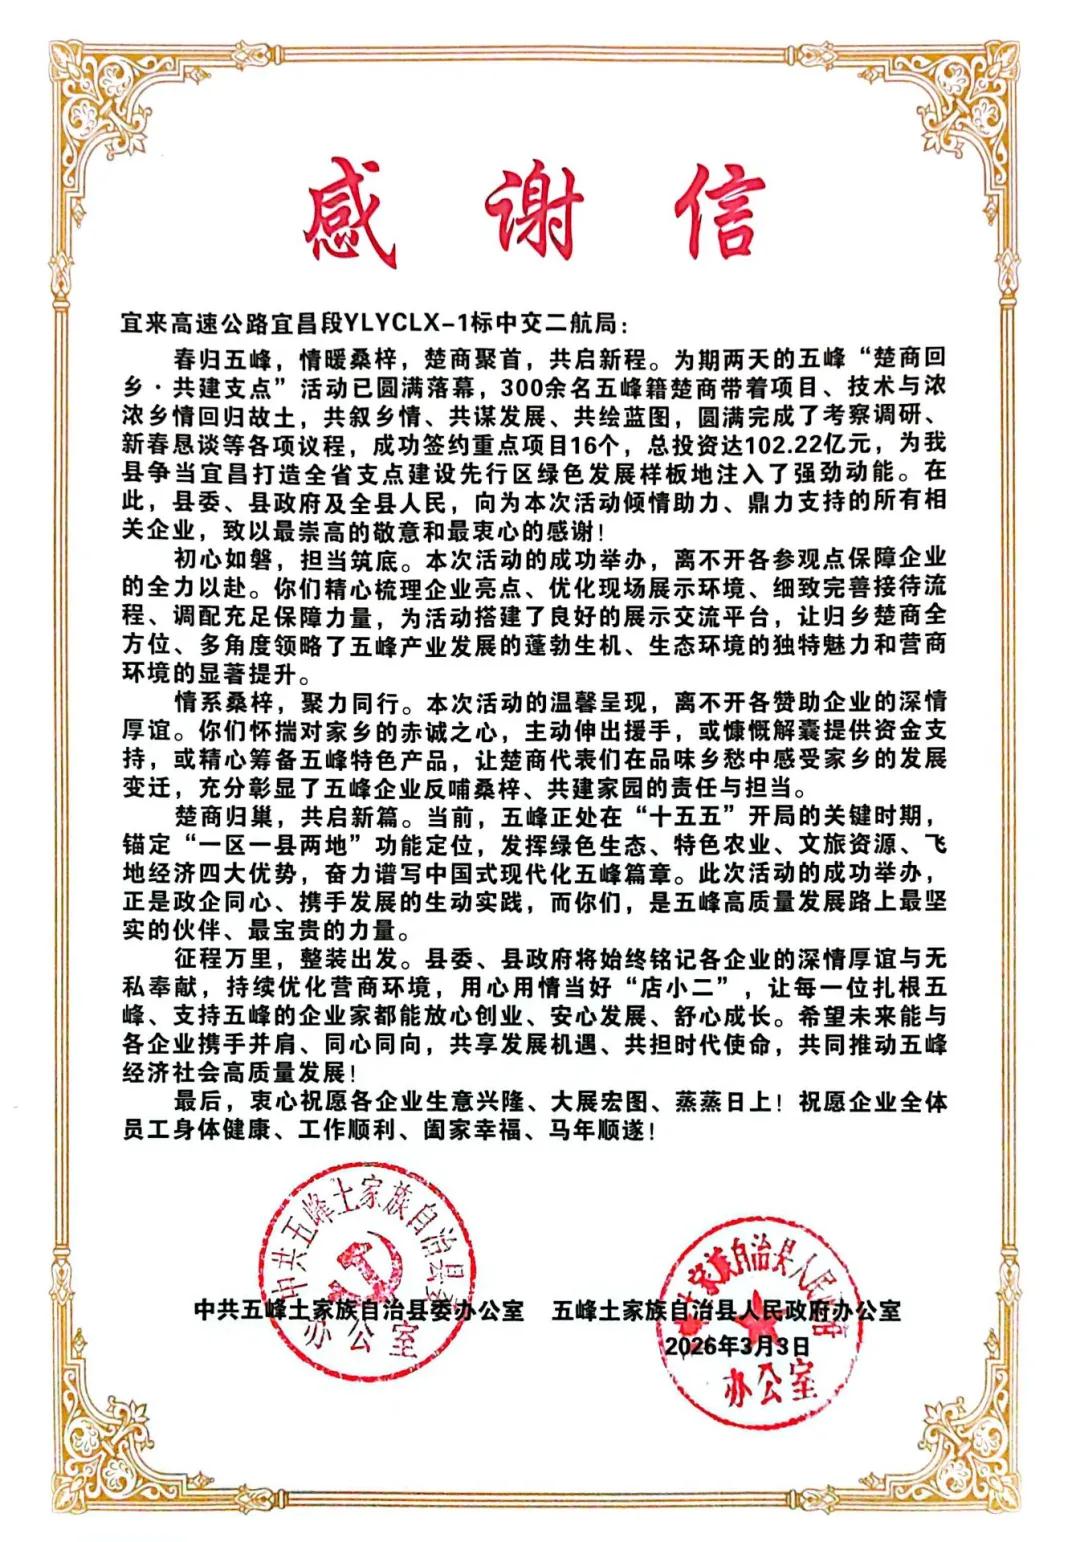 感谢信
宜来高速公路宜昌段YLYCLX-1标中交二航局：
春归五峰，情暖桑梓，楚商聚首，共启新程。为期两天的五峰“楚商回
乡·共建支点”活动已圆满落幕，300余名五峰籍楚商带着项目、技术与浓
浓乡情回归故土，共叙乡情、共谋发展、共绘蓝图，圆满完成了考察调研、
新春恳谈等各项议程，成功签约重点项目16个，总投资达102.22亿元，为我
县争当宜昌打造全省支点建设先行区绿色发展样板地注入了强劲动能。在
此，县委、县政府及全县人民，向为本次活动倾情助力、鼎力支持的所有相
关企业，致以最崇高的敬意和最衷心的感谢！
初心如磐，担当筑底。本次活动的成功举办，离不开各参观点保障企业
的全力以赴。你们精心梳理企业亮点、优化现场展示环境、细致完善接待流
程、调配充足保障力量，为活动搭建了良好的展示交流平台，让归乡楚商全
方位、多角度领略了五峰产业发展的蓬勃生机、生态环境的独特魅力和营商
环境的显著提升。
情系桑梓，聚力同行。本次活动的温馨呈现，离不开各赞助企业的深情
厚谊。你们怀揣对家乡的赤诚之心，主动伸出援手，或慷慨解囊提供资金支
持，或精心筹备五峰特色产品，让楚商代表们在品味乡愁中感受家乡的发展
变迁，充分彰显了五峰企业反哺桑梓、共建家园的责任与担当。
楚商归巢，共启新篇。当前，五峰正处在“十五五”开局的关键时期，
锚定“一区一县两地”功能定位，发挥绿色生态、特色农业、文旅资源、飞
地经济四大优势，奋力谱写中国式现代化五峰篇章。此次活动的成功举办，
正是政企同心、携手发展的生动实践，而你们，是五峰高质量发展路上最坚
实的伙伴、最宝贵的力量。
征程万里，整装出发。县委、县政府将始终铭记各企业的深情厚谊与无
私奉献，持续优化营商环境，用心用情当好“店小二”，让每一位扎根五
峰、支持五峰的企业家都能放心创业、安心发展、舒心成长。希望未来能与
各企业携手并肩、同心同向，共享发展机遇、共担时代使命，共同推动五峰
经济社会高质量发展！
最后，衷心祝愿各企业生意兴隆、大展宏图、蒸蒸日上！祝愿企业全体
员工身体健康、工作顺利、阖家幸福、马年顺遂！
中共五峰土家族自治县委
办公室
土家族自治县人民政府
办公室
中共五峰土家族自治县委办公室 五峰土家族自治县人民政府办公室
2026年3月3日